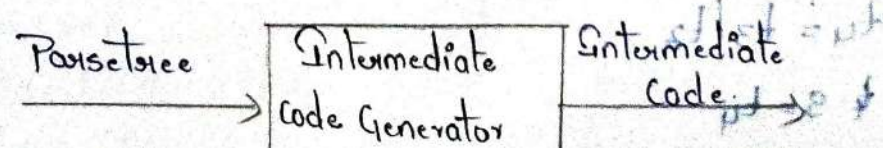 Parsetree
Intermediate
Code Generator
Intermediate
Code.